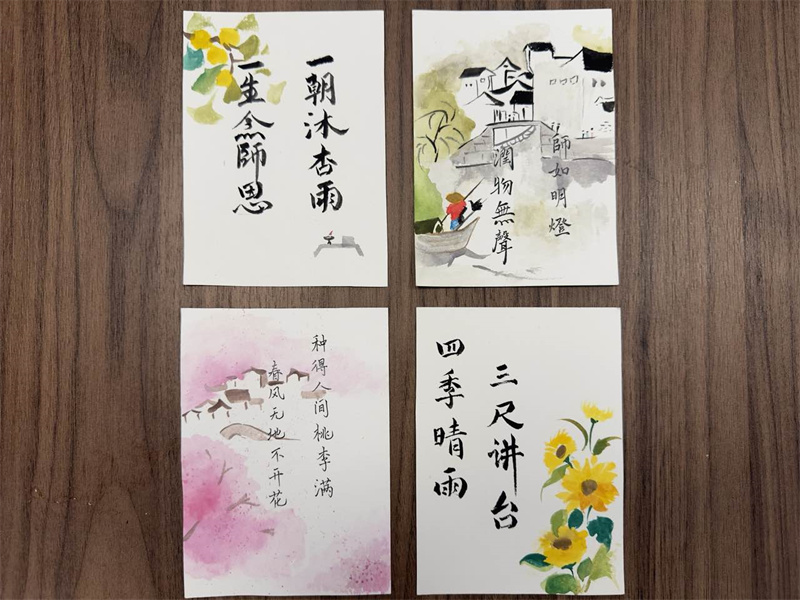 一朝沐杏雨
一生念師恩
師如明燈
潤物無聲
种得人间桃李满
春风无地不开花
三尺讲台
四季晴雨